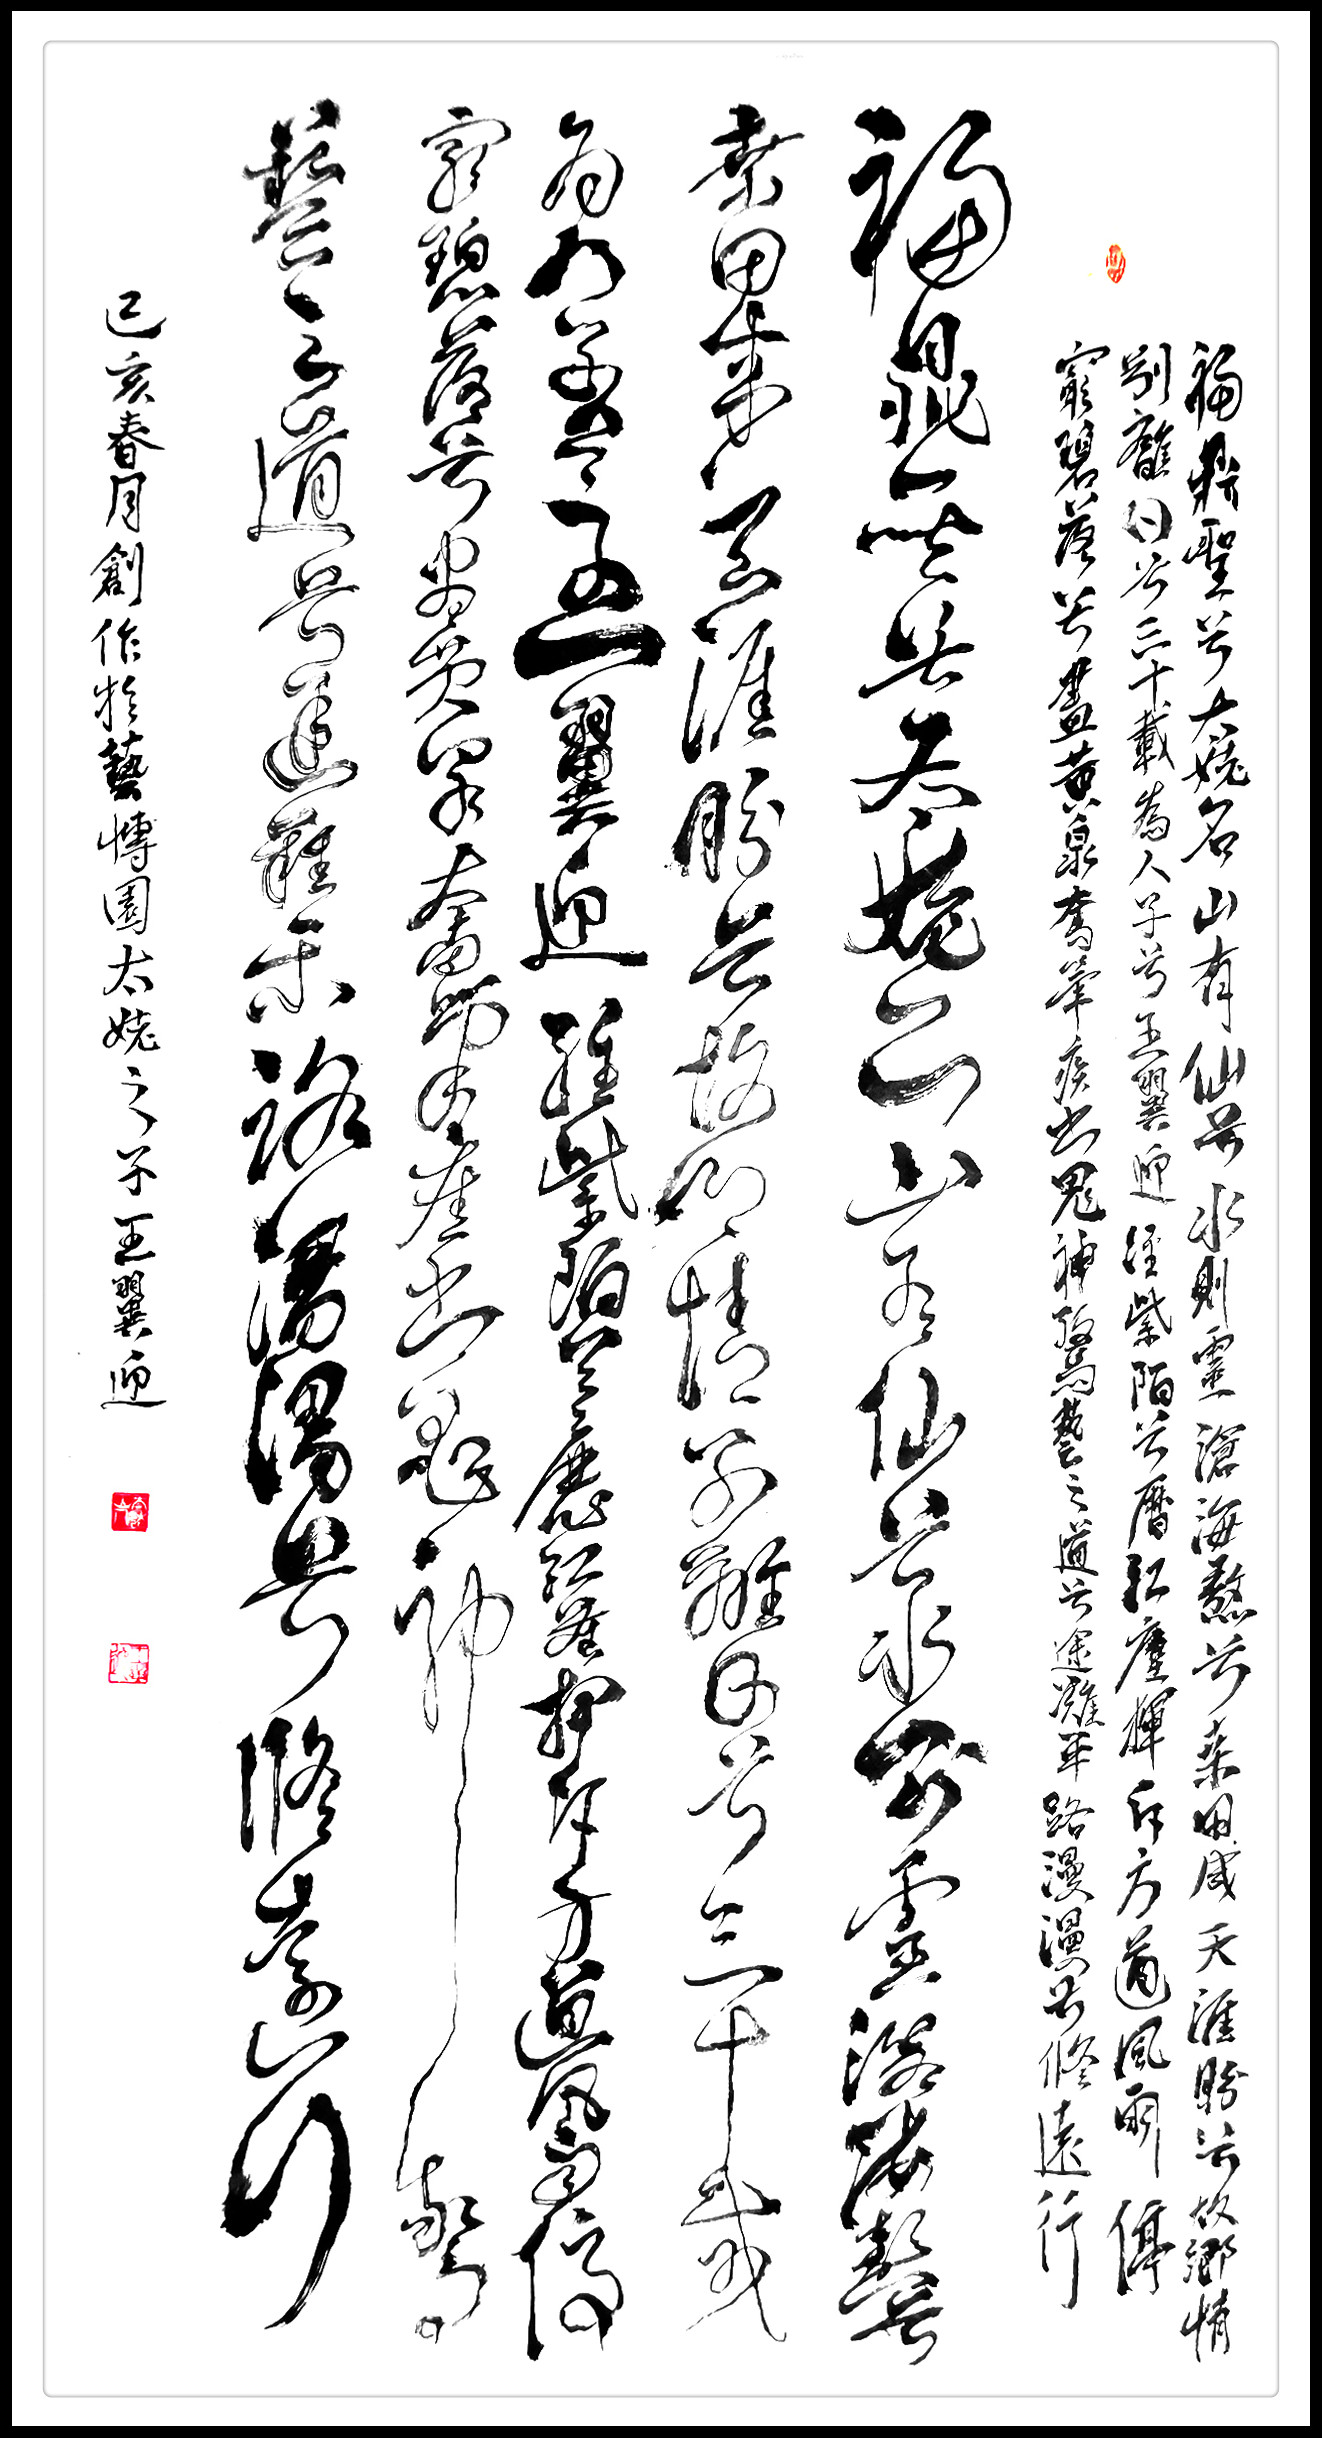 福鼎聖兮太姥名山有仙兮水則靈滄海鰲兮桑田成天涯盼兮故鄉情
別離日兮三十載為人子兮王翼迎經紫陌兮曆紅塵揮斥方遒風雨停
窮碧落兮盡黃泉奮筆疾書鬼神驚藝之道兮途難平路漫漫兮修遠行
福鼎聖兮太姥名山有仙兮水則靈滄海鰲兮
桑田成天涯盼兮故鄉情別離日兮三十載
為人子兮王翼迎經紫陌兮歷紅塵揮斥方遒風雨停
窮碧落兮盡黃泉奮筆疾書鬼神驚
藝之道兮途難平路漫漫兮修遠行
己亥春月創作於藝博園太姥之子王翼迎